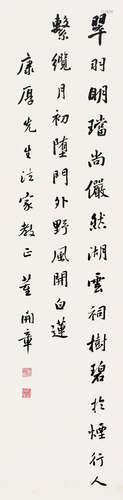 翠羽明璫尚儼然湖雲祠樹碧於煙行人
繫纜月初墮門外野風開白蓮
康厚先生法家教正 董開章